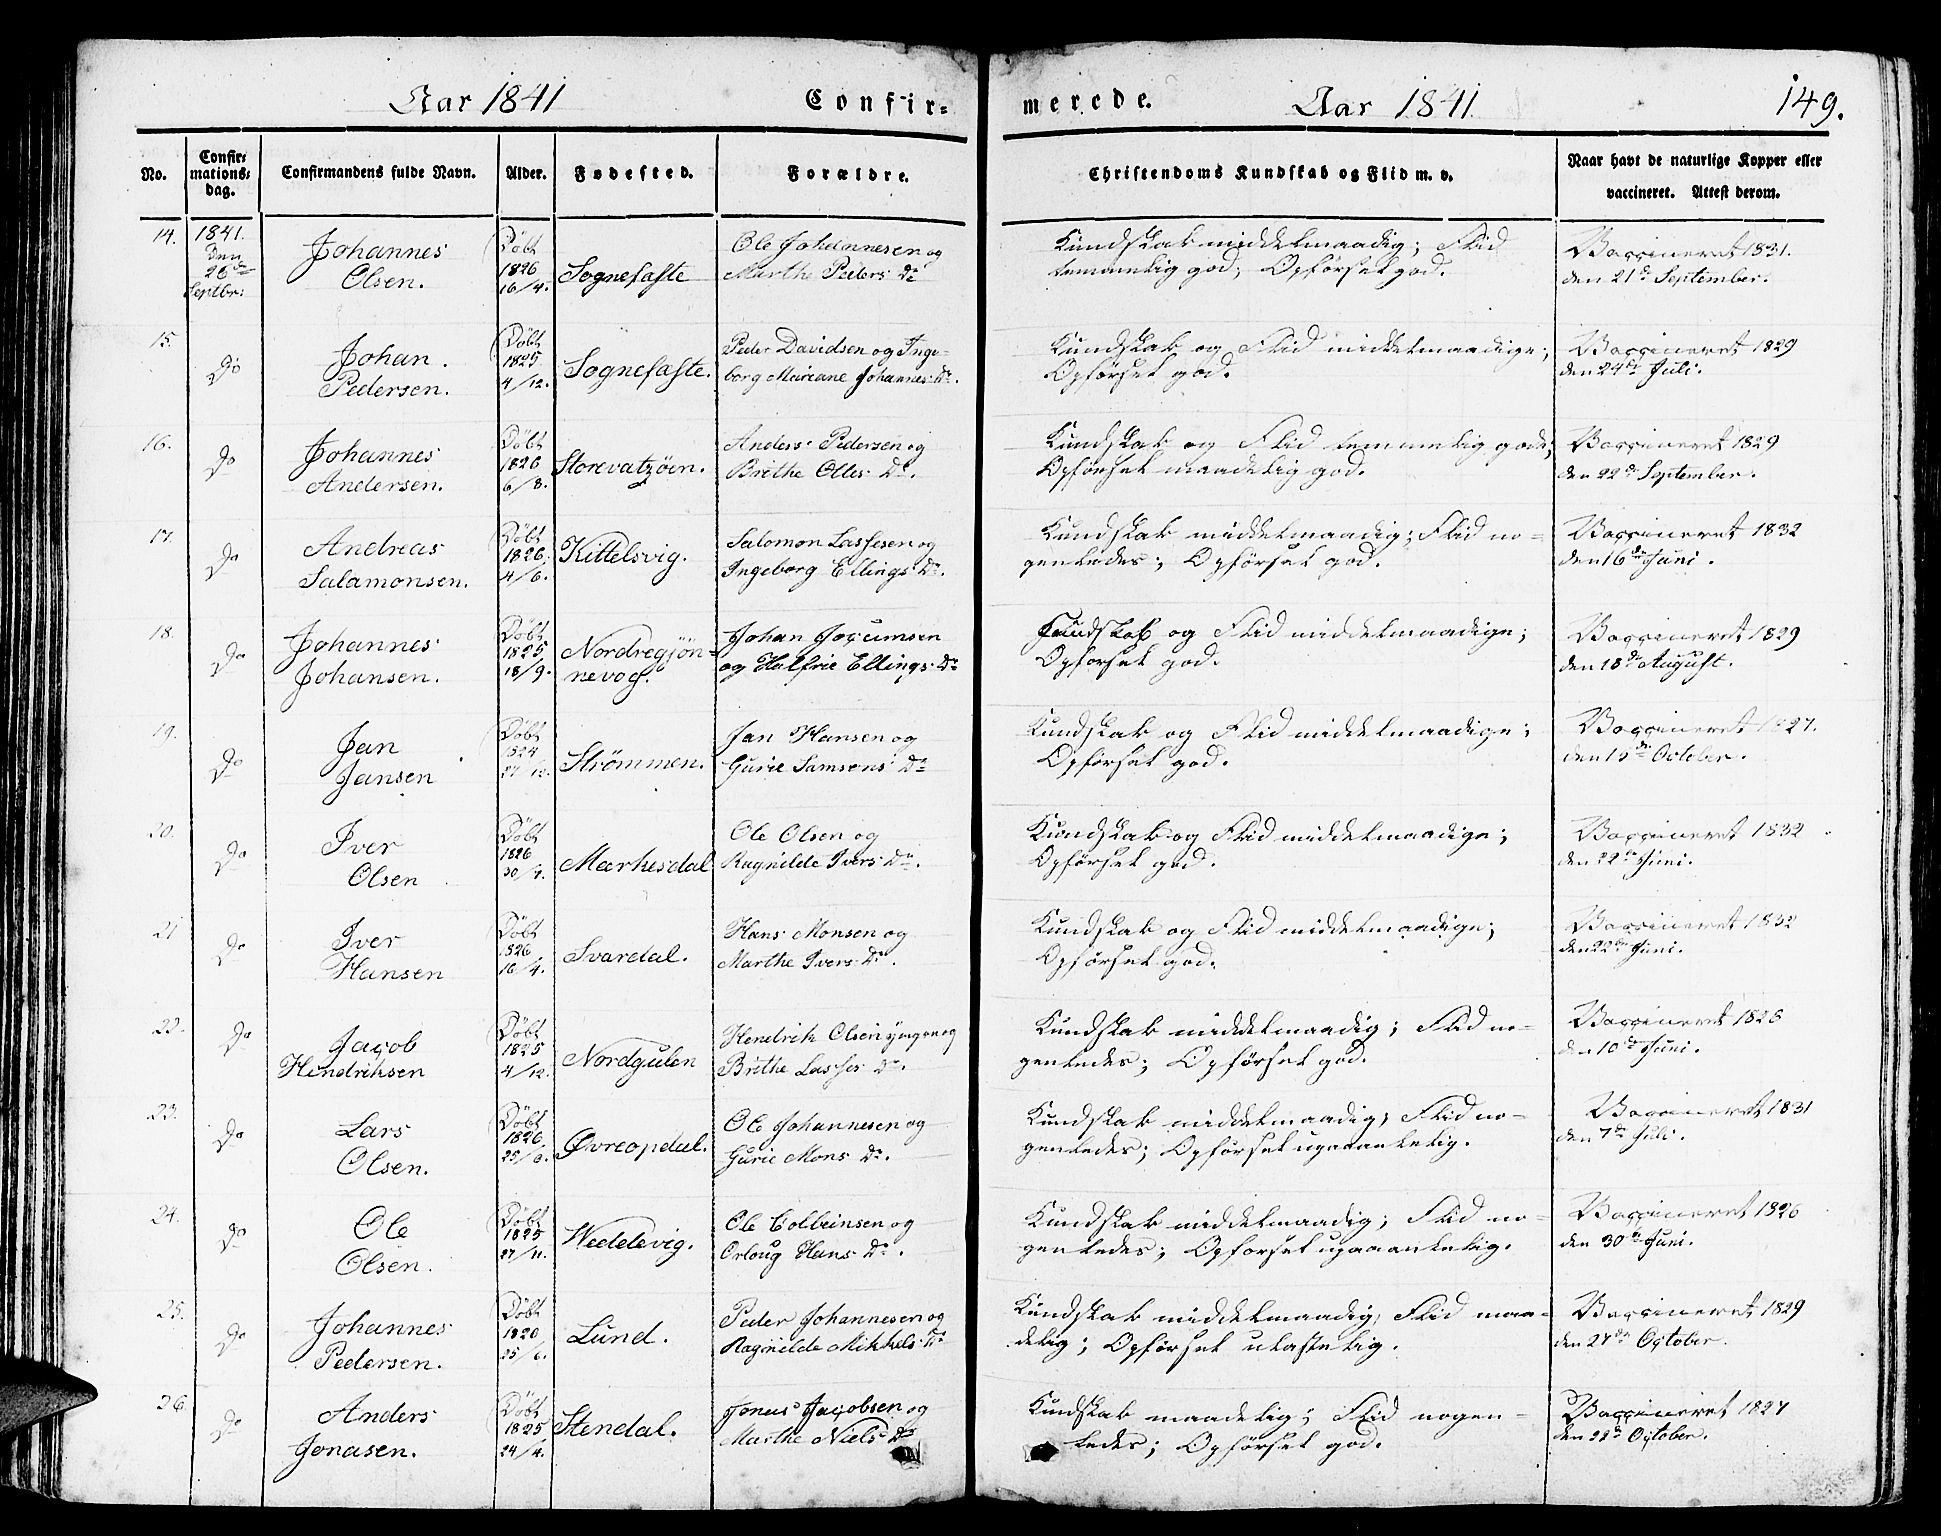 Aar 1841 Confir-
merede. Aar 1841. 149.
No.
Confir-
mations-
dag.
Confirmandens fulde Navn.
Alder.
Fødested.
Forældre.
Christendoms Kundskab og Flid m. v.
Naar havt de naturlige Kopper eller
vaccineret. Attest derom.
14.
1841.
Den
26de
Septbr:
Johannes
Olsen.
Døbt
1826
16/4.
Sognefaste
Ole Johannesen og
Marthe Peders Dr
Kundskab middelmaadig; Flid
temmelig god; Opførsel god.
Vaccineret 1831.
den 21de September.
15.
Do
Johan
Pedersen.
Døbt
1825
4/12.
Sognefaste.
Peder Davidsen og Inge-
borg Mariane Johannes Dr.
Kundskab og Flid middelmaadige;
Opførsel god.
Vaccineret 1829
den 24de Juli.
16.
Do
Johannes
Andersen.
Døbt
1826
6/8.
Anders Pedersen og
Brithe Olles Dr.
Kundskab og Flid temmelig gode;
Opførsel maadelig god.
Vaccineret 1829
den 22de September.
17.
Do
Andreas
Salamonsen.
Døbt
1826.
4/6.
Kittelsvig.
Salomon Lassesen og
Ingeborg Ellings Dr.
Kundskab middelmaadig; Flid no-
genledes; Opførsel god.
Vaccineret 1832
den 16de Juni.
18.
Do
Johannes
Johansen.
Døbt
1825
18/9.
Nordregjøn-
nevog.
Johan Joçumsen
og Halfrie Ellings Dr
Kundskab og Flid middelmaadige;
Opførsel god.
Vaccineret 1829
den 18de August.
19.
Do
Jan
Jansen
Døbt
1824
27/12.
Strømmen.
Jan Hansen og
Gurie Samsons Dr
Kundskab og Flid middelmaadige;
Opførsel god.
Vaccineret 1827.
den 15de October.
20.
Do
Iver
Olsen
Døbt
1826
Markesdal
Ole Olsen og
Ragnilde Ivers Dr.
Kundskab og Flid middelmaadige;
Opførsel god.
Vaccineret 1832
den 22de Juni.
21
Do
Iver
Hansen
Døbt
1826
16/4.
Svardal.
Hans Monsen og
Marthe Ivers Dr.
Kundskab og Flid middelmaadige;
Opførsel god.
Vaccineret 1832
den 22de Juni.
22.
Do
Jaçob
Hendriksen
Døbt
1825
4/12.
Nordgulen
Hendrik Olsen yngre og
Brithe Lasses Dr.
Kundskab middelmaadig; Flid no-
genledes; Opførsel god.
Vaccineret
den 10de Juni.
23.
Do
Lars
Olsen.
Døbt
1826
Øvreopdal.
Ole Johannesen og
Gurie Mons Dr.
Kundskab middelmaadig; Flid no-
genledes; Opførsel upaaankelig.
Vaccineret 1831
den 7de Juli.
24.
Do
Ole
Olsen.
Døbt
1825
27/11.
Weddevig.
Ole Colbeinsen og
Orloug Hans Dr.
Kundskab middelmaadig; Flid no-
genledes; Opførsel upaaankelig.
Vaccineret 1826
den 30te Juni.
25.
Do
Johannes
Pedersen.
Døbt
Lund.
Peder Johannesen og
Ragnilde Mikkels Dr
Kundskab middelmaadig; Flid maa-
delig; Opførsel ulastelig.
Vaccineret 1829
den 27de October.
26.
Do
Anders
Jonasen.
Døbt
1825
24/4.
Stendal.
Jonas Jaçobsen og
Marthe Niels Dr
Kundskab maadelig; Flid nogen-
ledes; Opførsel god.
Vaccineret 1827
den 22de October.